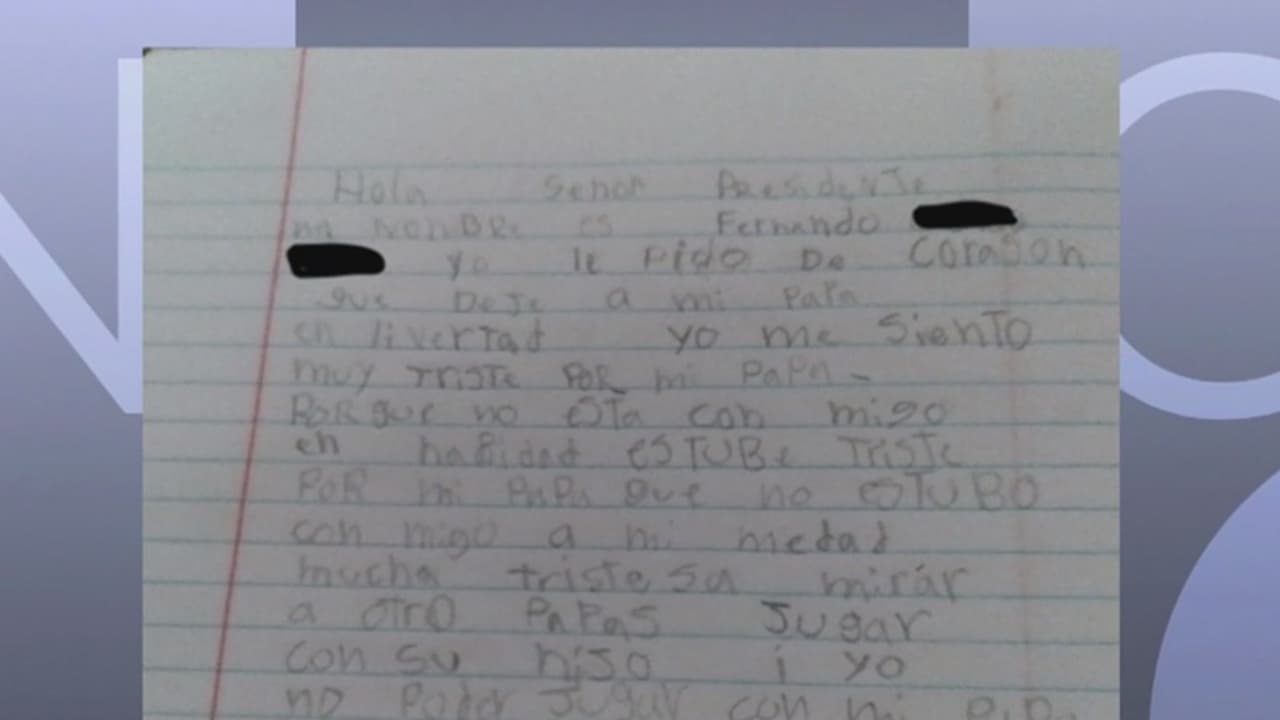 Hola Señor Presidente
mi nombre es Fernando
yo le pido De corason
que Deje a mi papa
en livertad yo me siento
muy triste por mi papa
porque no esta con migo
en nabidad estube triste
por mi papa que no estubo
con migo a mi medad
mucha tristesa mirár
a otro papas jugar
con su hiso i yo
no poder jugar con mi papa